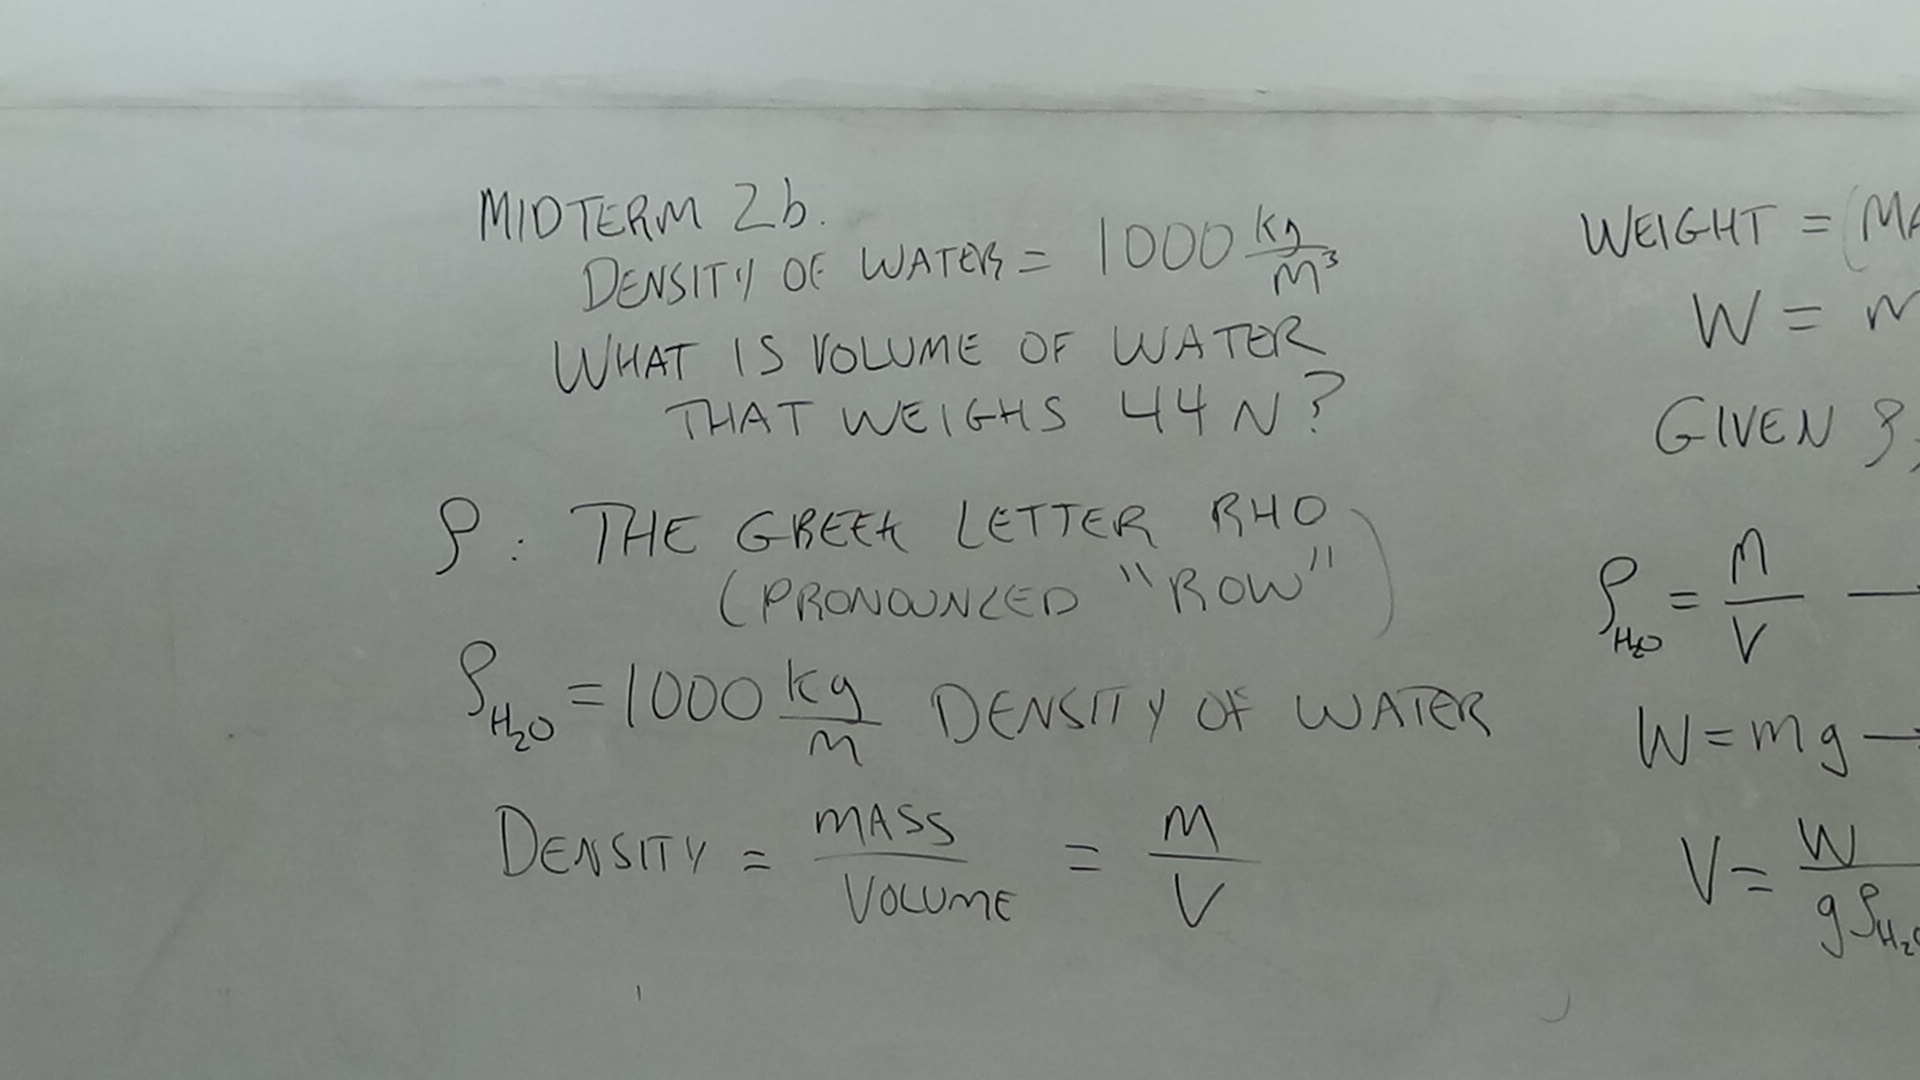 MIDTERM 2b.
DENSITY OF WATER = 1000 kg/m³
WHAT IS VOLUME OF WATER
THAT WEIGHS 44 N?
ρ : THE GREEK LETTER RHO
(PRONOUNCED "ROW")
ρH₂O = 1000 kg/m DENSITY OF WATER
DENSITY = MASS/VOLUME = M/V
WEIGHT = (MA
W = m
GIVEN ρ,
ρH₂O = m/V →
W = mg →
V = W/gρH₂O